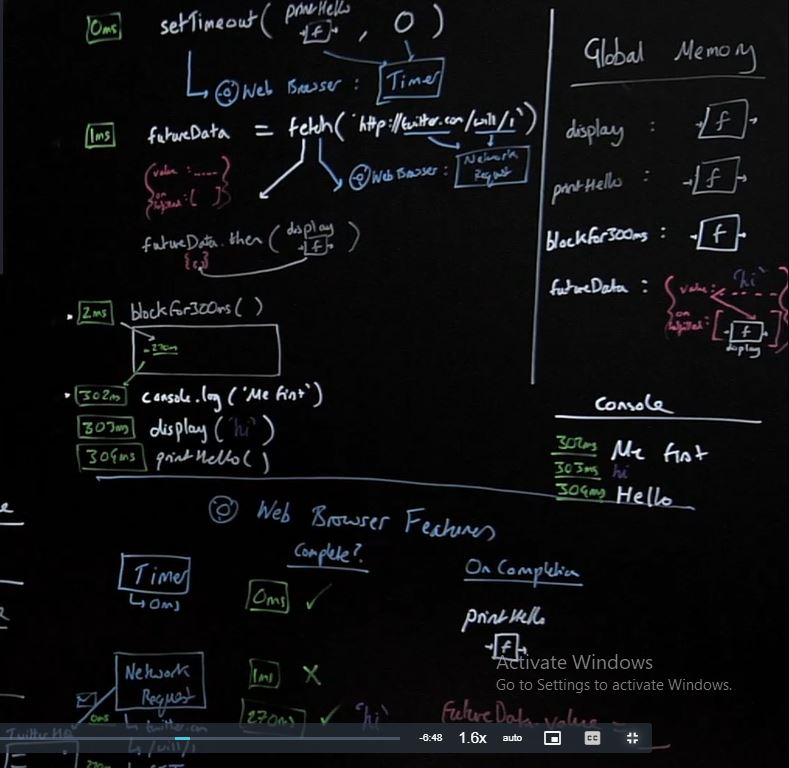 0ms setTimeout( printHello f , 0 )
Web Browser : Timer
1ms futureData = fetch('http://twitter.com/will/1')
Web Browser : Network Request
{ value : .....
on fulfilled : [ ] }
futureData.then ( display f )
2ms blockfor300ms ( )
270ms
302ms console.log ('Me first')
303ms display ( 'hi' )
304ms printHello ( )
Global Memory
display : f
printHello : f
blockfor300ms : f
futureData : { value : 'hi'
on fulfilled : [ f ] }
display
Console
302ms Me first
303ms hi
304ms Hello
Web Browser Features
Complete?
On Completion
Timer
0ms
0ms ✓
printHello
f
Network Request
1ms X
0ms
twitter.com
/will/1
270ms ✓ 'hi'
FutureData.value =
Twitter HQ
Activate Windows
Go to Settings to activate Windows.
-6:48 1.6x auto CC